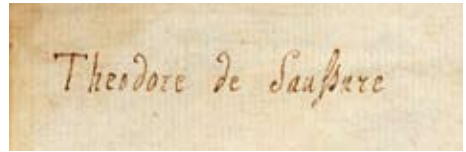 Theodore de Saußure